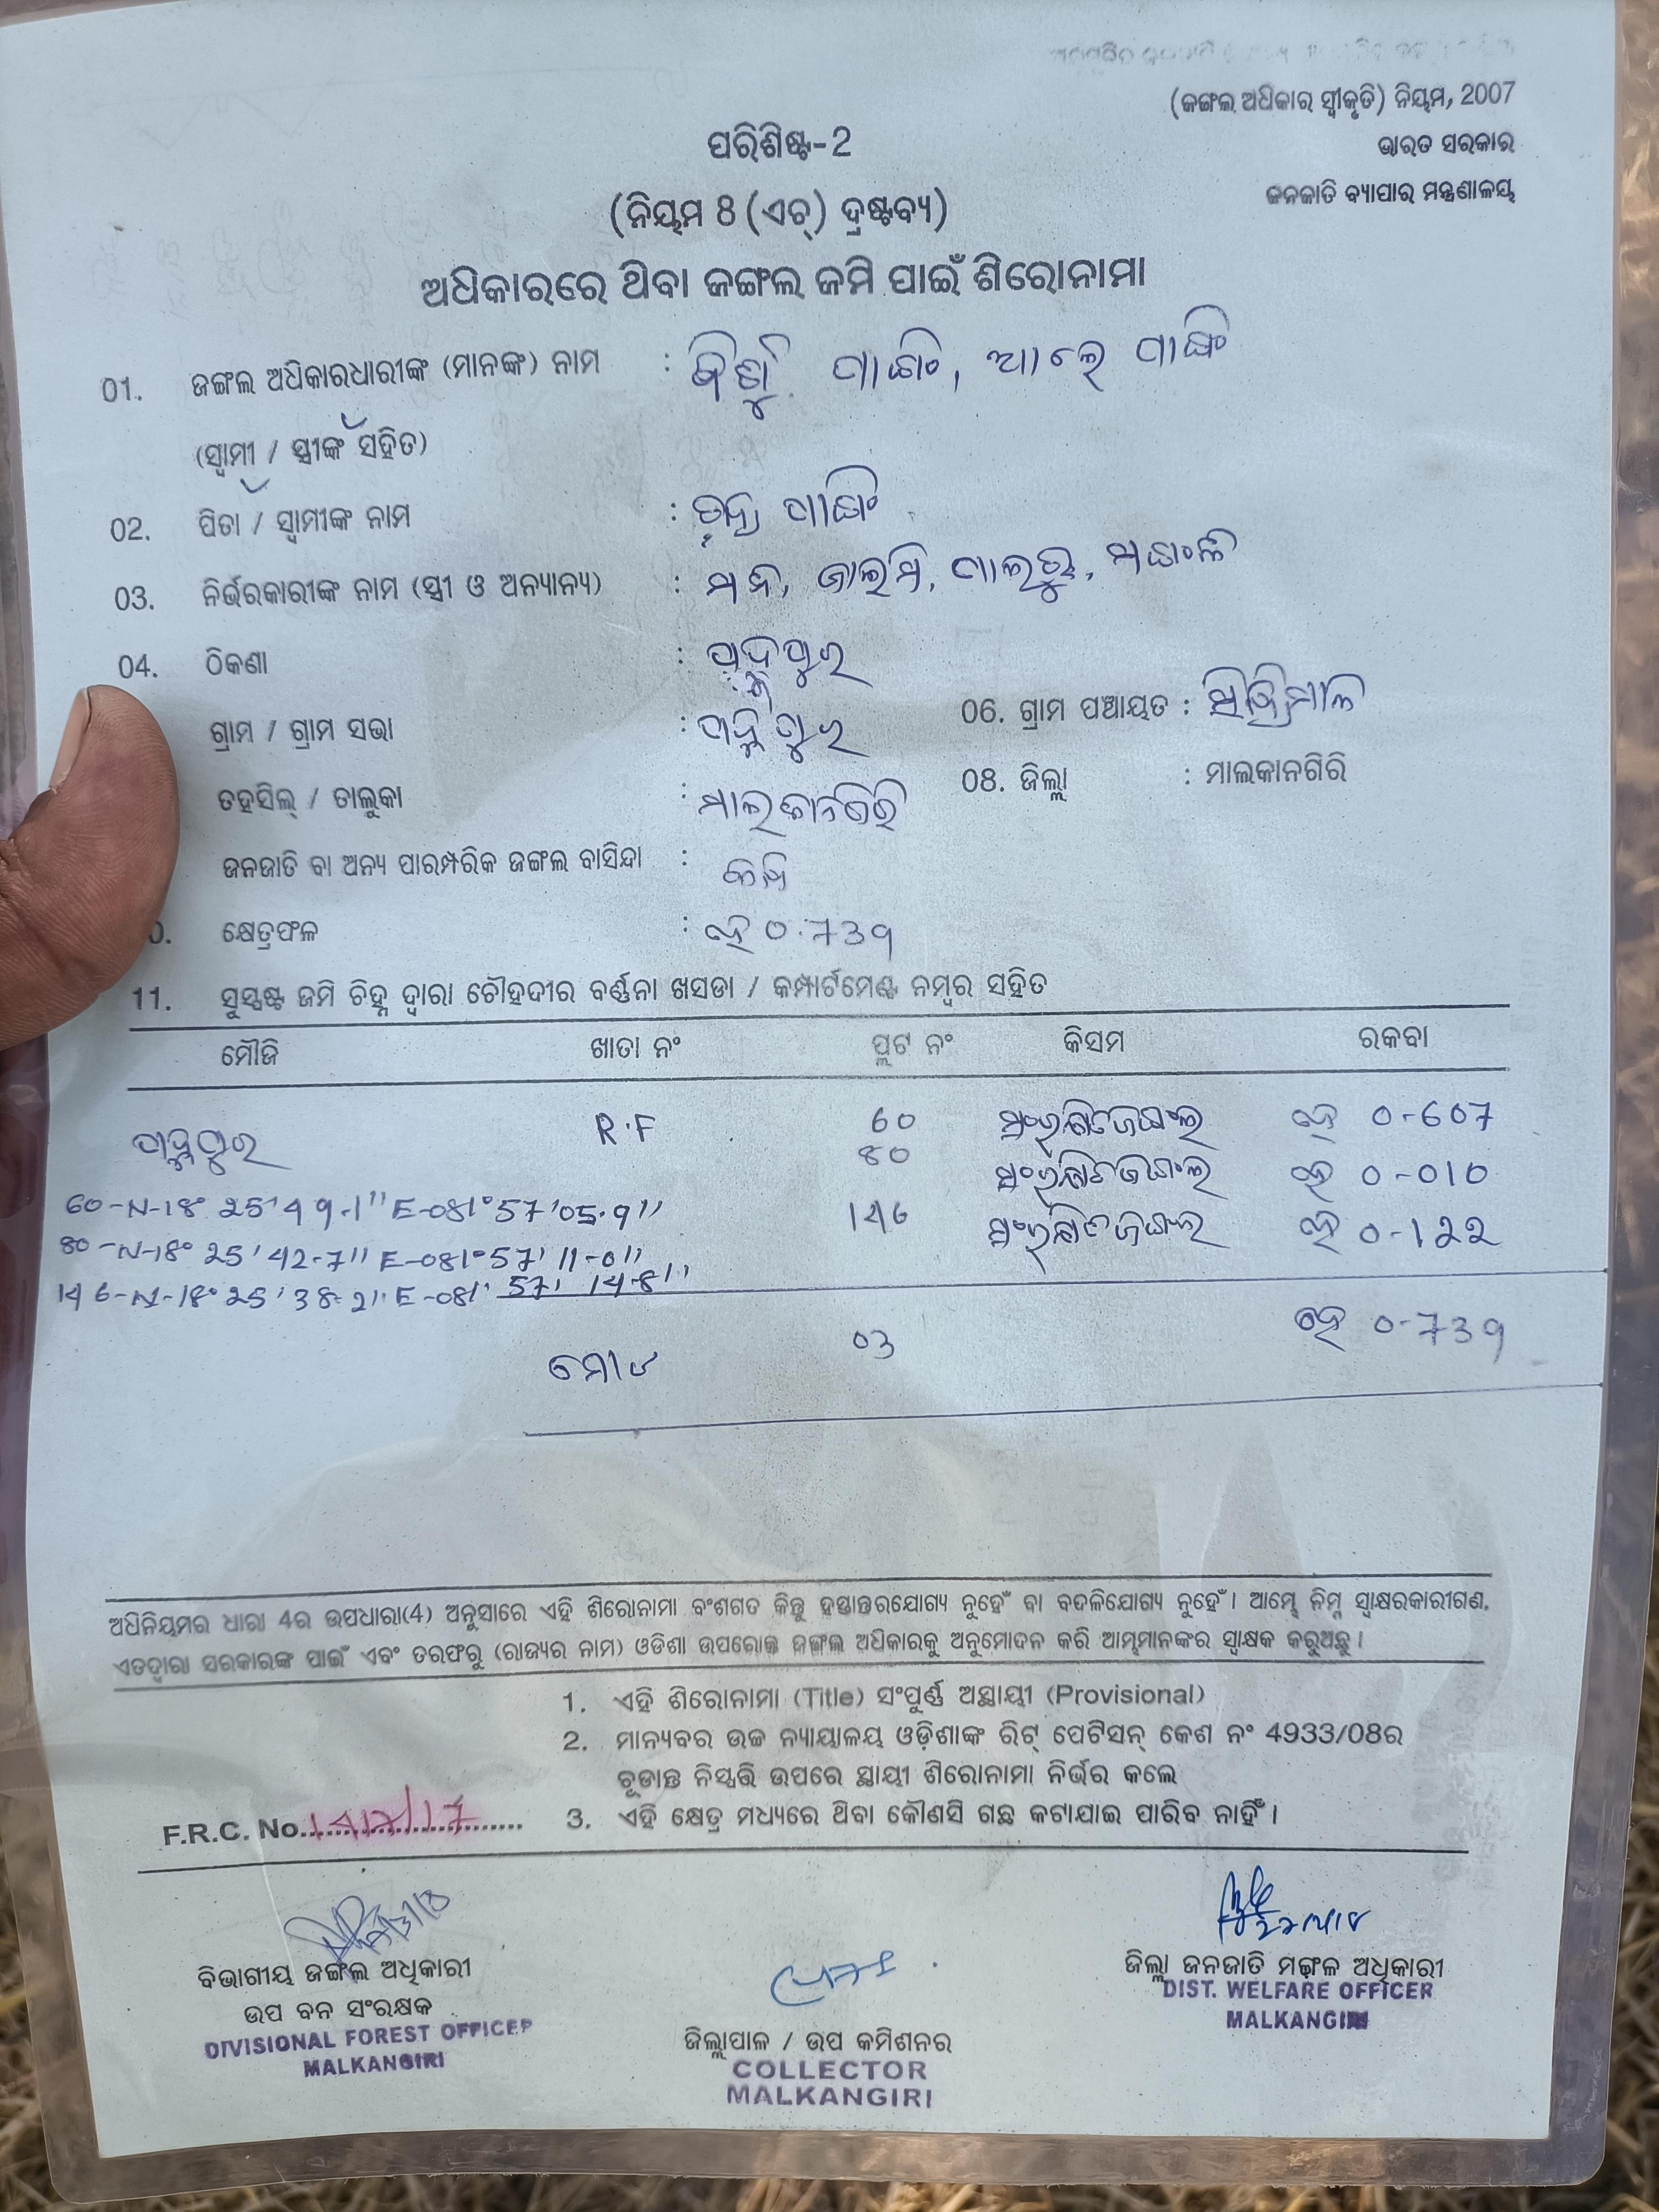 (ଜଙ୍ଗଲ ଅଧିକାର ସ୍ୱୀକୃତି) ନିୟମ, 2007
ପରିଶିଷ୍ଟ-2
ଭାରତ ସରକାର
(ନିୟମ 8 (ଏଚ୍) ଦ୍ରଷ୍ଟବ୍ୟ)
ଜନଜାତି ବ୍ୟାପାର ମନ୍ତ୍ରଣାଳୟ
ଅଧିକାରରେ ଥିବା ଜଙ୍ଗଲ ଜମି ପାଇଁ ଶିରୋନାମା
01. ଜଙ୍ଗଲ ଅଧିକାରଧାରୀଙ୍କ (ମାନଙ୍କ) ନାମ :
(ସ୍ୱାମୀ / ସ୍ତ୍ରୀଙ୍କ ସହିତ)
02. ପିତା / ସ୍ୱାମୀଙ୍କ ନାମ :
03. ନିର୍ଭରକାରୀଙ୍କ ନାମ (ସ୍ତ୍ରୀ ଓ ଅନ୍ୟାନ୍ୟ) :
04. ଠିକଣା :
ଗ୍ରାମ / ଗ୍ରାମ ସଭା : 06. ଗ୍ରାମ ପଞ୍ଚାୟତ :
ତହସିଲ୍ / ତାଲୁକା : ମାଲକାନଗିରି 08. ଜିଲ୍ଲା : ମାଲକାନଗିରି
ଜନଜାତି ବା ଅନ୍ୟ ପାରମ୍ପରିକ ଜଙ୍ଗଲ ବାସିନ୍ଦା :
0. କ୍ଷେତ୍ରଫଳ : ହେ 0.739
11. ସୁସ୍ପଷ୍ଟ ଜମି ଚିହ୍ନ ଦ୍ୱାରା ଚୌହଦୀର ବର୍ଣ୍ଣନା ଖସଡା / କମ୍ପାର୍ଟମେଣ୍ଟ ନମ୍ବର ସହିତ
ମୌଜି ଖାତା ନଂ ପ୍ଲଟ ନଂ କିସମ ରକବା
R.F 60 ସଂରକ୍ଷିତ ଜଙ୍ଗଲ ହେ 0-607
80 ସଂରକ୍ଷିତ ଜଙ୍ଗଲ ହେ 0-010
60-N-18° 25' 49.1" E-081° 57' 05.9"
146 ସଂରକ୍ଷିତ ଜଙ୍ଗଲ ହେ 0-122
80-N-18° 25' 42-7" E-081° 57' 11-0"
146-N-18° 25' 38-2" E-081° 57' 14-8"
ମୋଟ 03 ହେ 0-739
ଅଧିନିୟମର ଧାରା 4ର ଉପଧାରା(4) ଅନୁସାରେ ଏହି ଶିରୋନାମା ବଂଶଗତ କିନ୍ତୁ ହସ୍ତାନ୍ତରଯୋଗ୍ୟ ନୁହେଁ ବା ବଦଳିଯୋଗ୍ୟ ନୁହେଁ । ଆମ୍ଭେ ନିମ୍ନ ସ୍ୱାକ୍ଷରକାରୀଗଣ,
ଏତଦ୍ୱାରା ସରକାରଙ୍କ ପାଇଁ ଏବଂ ତରଫରୁ (ରାଜ୍ୟର ନାମ) ଓଡିଶା ଉପରୋକ୍ତ ଜଙ୍ଗଲ ଅଧିକାରକୁ ଅନୁମୋଦନ କରି ଆମ୍ଭମାନଙ୍କର ସ୍ୱାକ୍ଷକ କରୁଅଛୁ ।
1. ଏହି ଶିରୋନାମା (Title) ସଂପୂର୍ଣ୍ଣ ଅସ୍ଥାୟୀ (Provisional)
2. ମାନ୍ୟବର ଉଚ୍ଚ ନ୍ୟାୟାଳୟ ଓଡ଼ିଶାଙ୍କ ରିଟ୍ ପେଟିସନ୍ କେଶ ନଂ 4933/08ର
ଚୂଡାନ୍ତ ନିସ୍ପତ୍ତି ଉପରେ ସ୍ଥାୟୀ ଶିରୋନାମା ନିର୍ଭର କଲେ
F.R.C. No. 3. ଏହି କ୍ଷେତ୍ର ମଧ୍ୟରେ ଥିବା କୌଣସି ଗଛ କଟାଯାଇ ପାରିବ ନାହିଁ ।
ବିଭାଗୀୟ ଜଙ୍ଗଲ ଅଧିକାରୀ
ଉପ ବନ ସଂରକ୍ଷକ
DIVISIONAL FOREST OFFICER
MALKANGIRI
ଜିଲ୍ଲାପାଳ / ଉପ କମିଶନର
COLLECTOR
MALKANGIRI
ଜିଲ୍ଲା ଜନଜାତି ମଙ୍ଗଳ ଅଧିକାରୀ
DIST. WELFARE OFFICER
MALKANGIRI